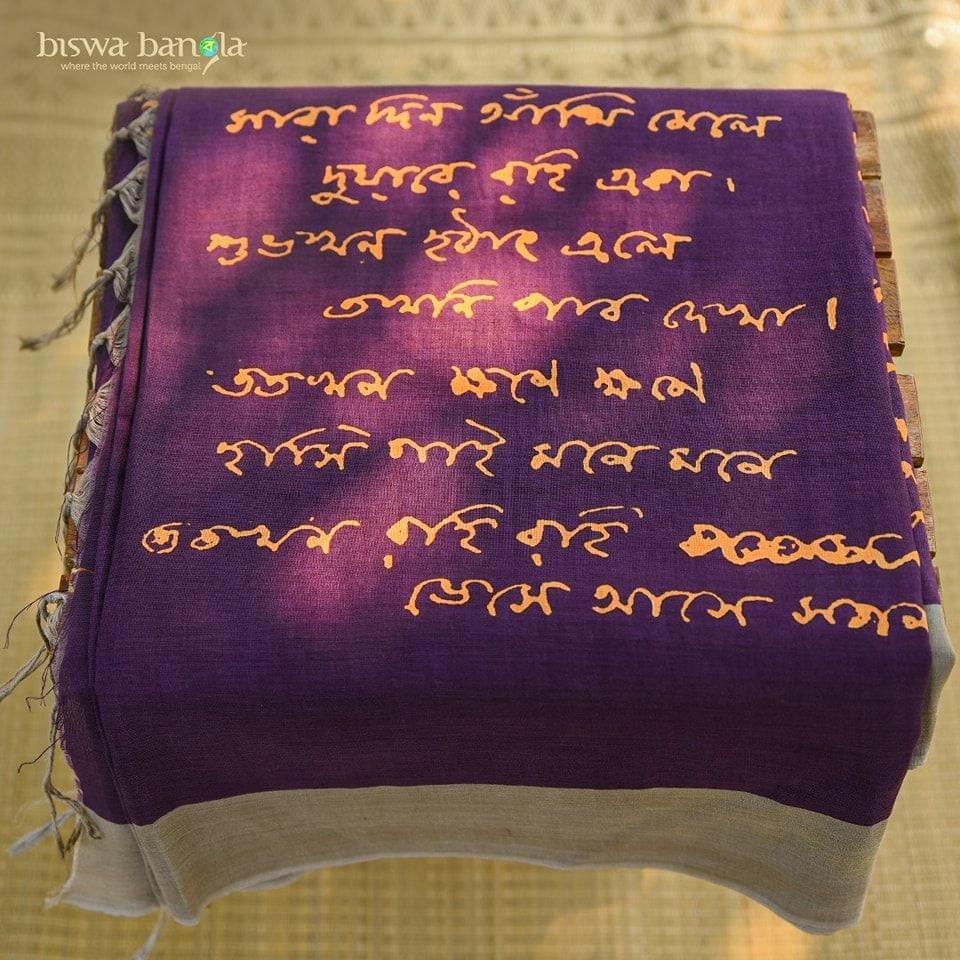 biswa bangla
where the world meets bengal
সারা দিন আঁখি মেলে
দুয়ারে রহি একা।
শুভখন হঠাৎ এলে
তখনি পাব দেখা।
ততখন ক্ষণে ক্ষণে
হাসি গাই মনে মনে
ততখন রহি রহি
ভেসে আসে